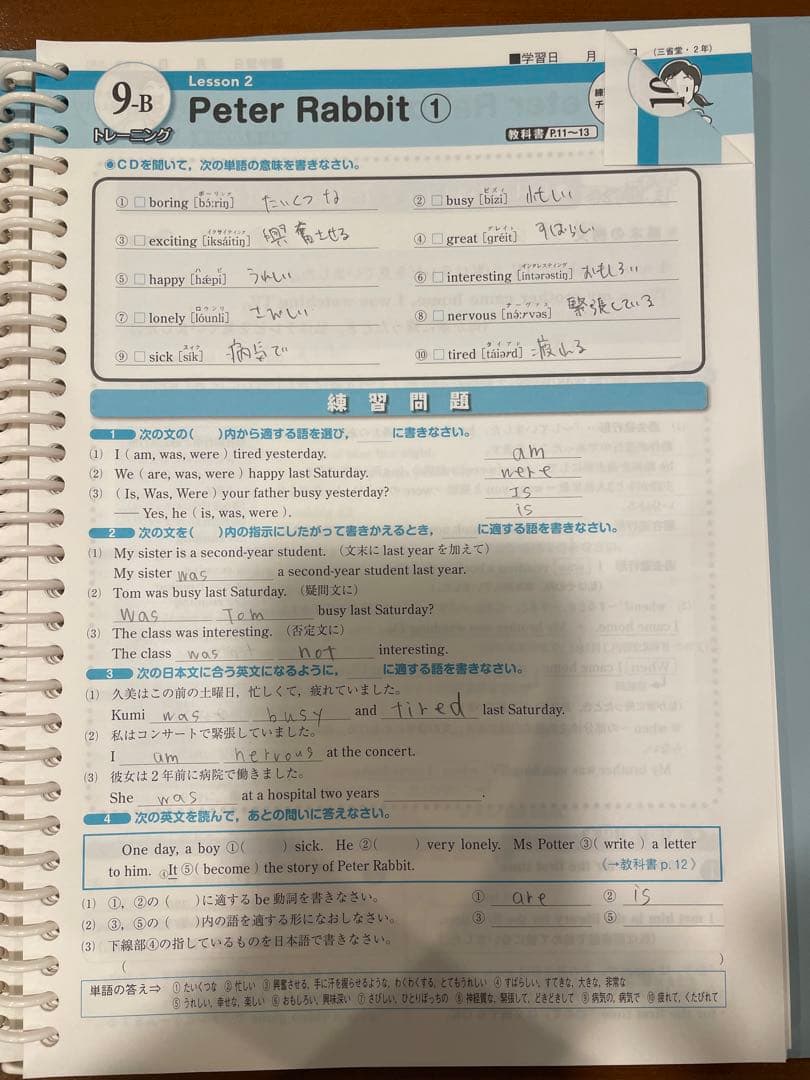 ■学習日 月 日 (三省堂・2年)
9-B Lesson 2
トレーニング Peter Rabbit ①
教科書 P.11〜13
◉CDを聞いて,次の単語の意味を書きなさい。
① □ boring [bɔ́ːriŋ] ボーリング たいくつな ② □ busy [bízi] ビズィ 忙しい
③ □ exciting [iksáitiŋ] イクサイティング 興奮させる ④ □ great [gréit] グレイト すばらしい
⑤ □ happy [hǽpi] ハピ うれしい ⑥ □ interesting [íntərəstiŋ] インタレスティング おもしろい
⑦ □ lonely [lóunli] ロウンリ さみしい ⑧ □ nervous [nə́ːrvəs] ナーヴァス 緊張している
⑨ □ sick [sík] スィク 病気で ⑩ □ tired [táiərd] タイアド 疲れる
練習問題
1 次の文の( )内から適する語を選び, に書きなさい。
(1) I ( am, was, were ) tired yesterday. am
(2) We ( are, was, were ) happy last Saturday. were
(3) ( Is, Was, Were ) your father busy yesterday? Is
—— Yes, he ( is, was, were ). is
2 次の文を( )内の指示にしたがって書きかえるとき, に適する語を書きなさい。
(1) My sister is a second-year student. (文末に last year を加えて)
My sister was a second-year student last year.
(2) Tom was busy last Saturday. (疑問文に)
Was Tom busy last Saturday?
(3) The class was interesting. (否定文に)
The class was not interesting.
3 次の日本文に合う英文になるように, に適する語を書きなさい。
(1) 久美はこの前の土曜日,忙しくて,疲れていました。
Kumi was busy and tired last Saturday.
(2) 私はコンサートで緊張していました。
I am nervous at the concert.
(3) 彼女は2年前に病院で働きました。
She was at a hospital two years .
4 次の英文を読んで,あとの問いに答えなさい。
One day, a boy ①( ) sick. He ②( ) very lonely. Ms Potter ③( write ) a letter
to him. ④It ⑤( become ) the story of Peter Rabbit. (→教科書 p.12)
(1) ①,②の( )に適する be 動詞を書きなさい。 ① are ② is
(2) ③,⑤の( )内の語を適する形になおしなさい。 ③ ⑤
(3) 下線部④の指しているものを日本語で書きなさい。
( )
単語の答え⇒ ①たいくつな ②忙しい ③興奮させる,手に汗を握らせるような,わくわくする,とてもうれしい ④すばらしい,すてきな,大きな,非常な
⑤うれしい,幸せな,楽しい ⑥おもしろい,興味深い ⑦さびしい,ひとりぼっちの ⑧神経質な,緊張して,どきどきして ⑨病気の,病気で ⑩疲れて,くたびれて